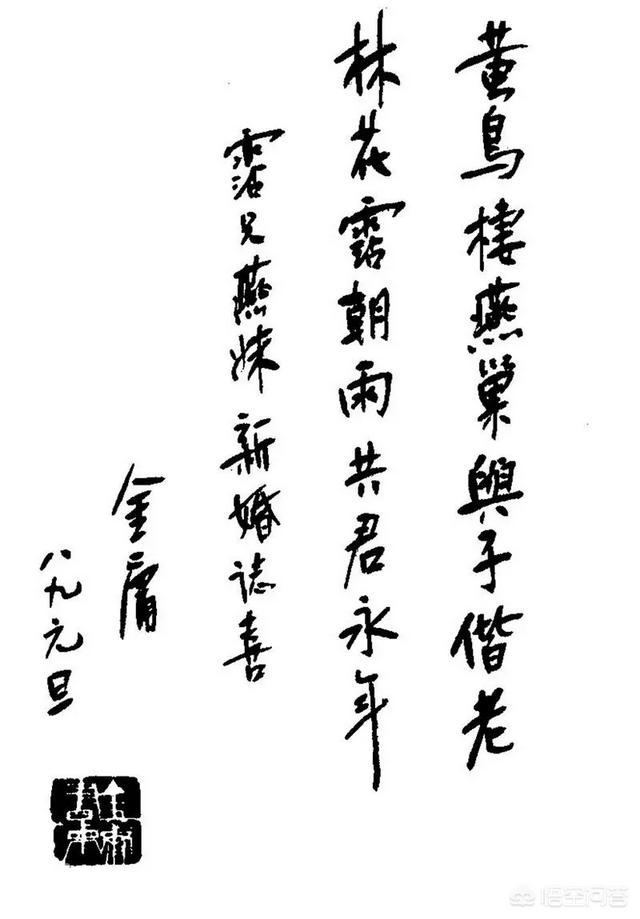 黄鳥棲燕巢與子偕老
林花霑朝雨共君永年
霑兄燕妹新婚誌喜
金庸
八九元旦
悟空问答